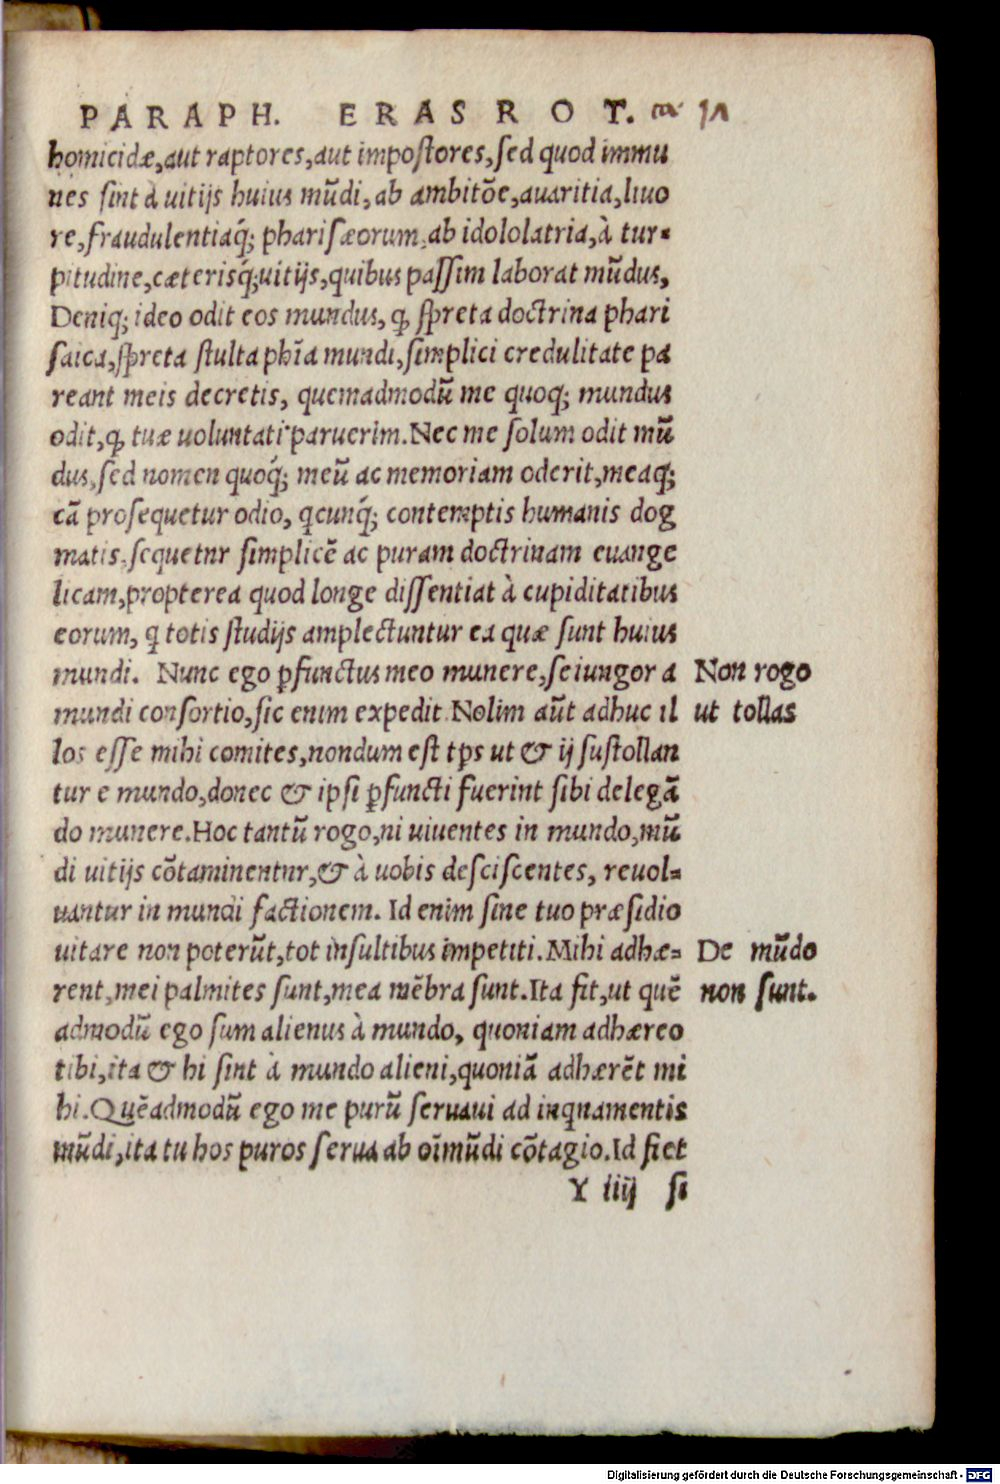 PARAPH. ERAS ROT.
homicidæ,aut raptores,aut impostores,sed quod immu
nes sint à uitijs huius mũdi,ab ambitõe,auaritia,liuo
re,fraudulentiaq́; pharisæorum,ab idololatria,à tur-
pitudine,cæterisq́;uitijs,quibus passim laborat mũdus,
Deniq; ideo odit eos mundus, ꝙ spreta doctrina phari
saica,spreta stulta phĩa mundi,simplici credulitate pa
reant meis decretis, quemadmodũ me quoq; mundus
odit,ꝙ tuæ uoluntati paruerim.Nec me solum odit mũ
dus,sed nomen quoq́; meũ ac memoriam oderit,meaq́;
cã prosequetur odio, qcunq́; contemptis humanis dog
matis,sequetnr simplicẽ ac puram doctrinam euange
licam,propterea quod longe dissentiat à cupiditatibus
eorum, q totis studijs amplectuntur ea quæ sunt huius
mundi. Nunc ego ꝑfunctus meo munere,seiungor a
mundi consortio,sic enim expedit.Nolim aũt adhuc il
los esse mihi comites,nondum est tꝑs ut & ij sustollan
tur e mundo,donec & ipsi ꝑfuncti fuerint sibi delegã
do munere.Hoc tantũ rogo,ni uiuentes in mundo,mũ
di uitijs cõtaminentnr,& à uobis desciscentes, reuol-
uantur in mundi factionem. Id enim sine tuo præsidio
uitare non poterũt,tot insultibus impetiti.Mihi adhæ-
rent,mei palmites sunt,mea mẽbra sunt.Ita fit,ut quẽ
admodũ ego sum alienus à mundo, quoniam adhæreo
tibi,ita & hi sint à mundo alieni,quoniã adhærẽt mi
hi.Quẽadmodũ ego me purũ seruaui ad inqnamentis
mũdi,ita tu hos puros serua ab oĩmũdi cõtagio.Id fiet
Y iiij si
Non rogo
ut tollas
De mũdo
non sunt.
Digitalisierung gefördert durch die Deutsche Forschungsgemeinschaft - DFG